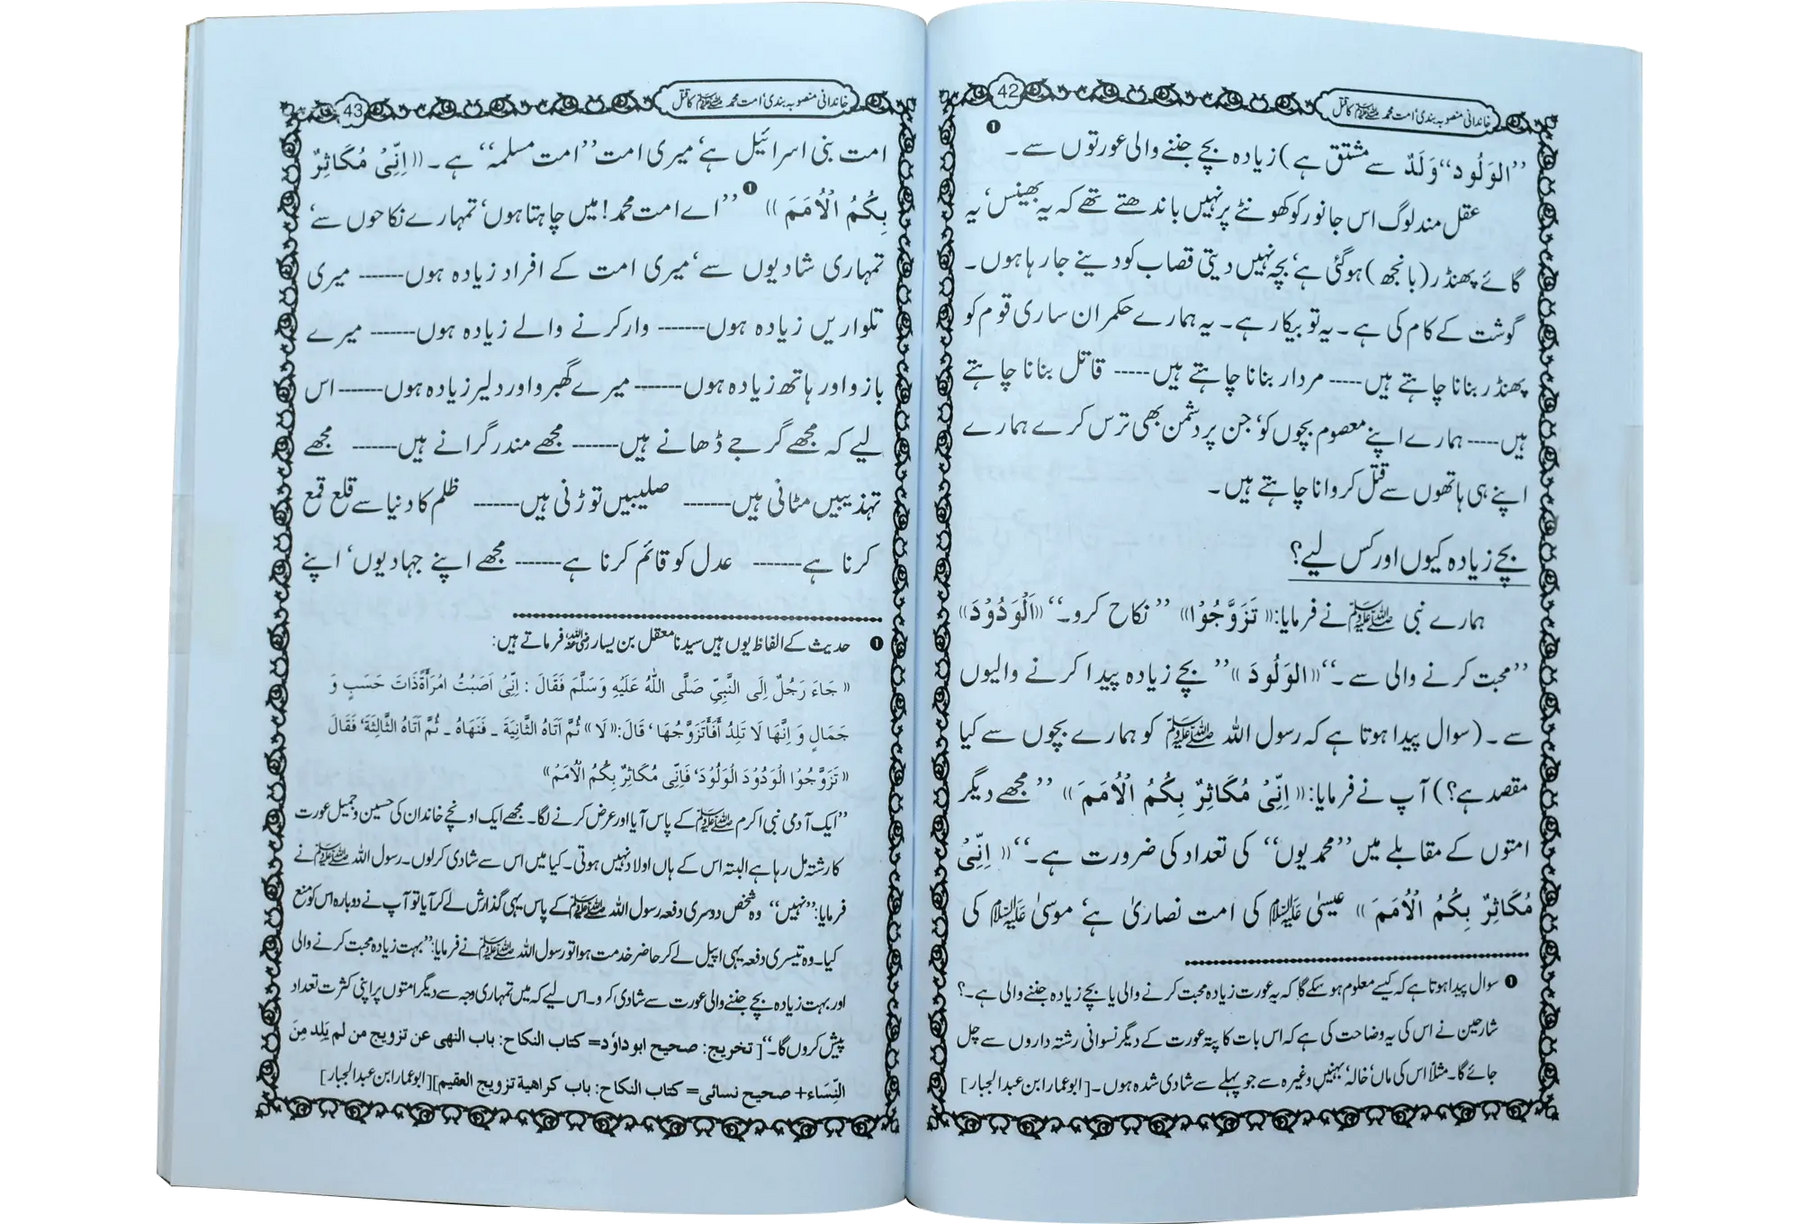 خاندانی منصوبہ بندی‘ امت محمد ﷺ کا قتل
42
’’الوَلُود‘‘ وَلَدٌ سے مشتق ہے) زیادہ بچے جننے والی عورتوں سے۔ ❶
عقل مند لوگ اس جانور کو کھونٹے پر نہیں باندھتے تھے کہ یہ بھینس‘ یہ
گائے پھنڈر (بانجھ) ہو گئی ہے‘ بچہ نہیں دیتی قصاب کو دینے جا رہا ہوں۔
گوشت کے کام کی ہے۔ یہ تو بیکار ہے۔ یہ ہمارے حکمران ساری قوم کو
پھنڈر بنانا چاہتے ہیں---- مردار بنانا چاہتے ہیں----- قاتل بنانا چاہتے
ہیں---- ہمارے اپنے معصوم بچوں کو‘ جن پر دشمن بھی ترس کرے ہمارے
اپنے ہی ہاتھوں سے قتل کروانا چاہتے ہیں۔
بچے زیادہ کیوں اور کس لیے؟
ہمارے نبی ﷺ نے فرمایا: «تَزَوَّجُوْا» ’’نکاح کرو۔‘‘ «اَلْوَدُوْدَ»
’’محبت کرنے والی سے۔‘‘ «الوَلُودَ» ’’بچے زیادہ پیدا کرنے والیوں
سے۔ (سوال پیدا ہوتا ہے کہ رسول اللہ ﷺ کو ہمارے بچوں سے کیا
مقصد ہے؟) آپ نے فرمایا: «اِنِّیْ مُکَاثِرٌ بِکُمُ الْاُمَمَ» ’’مجھے دیگر
امتوں کے مقابلے میں ’’محمدیوں‘‘ کی تعداد کی ضرورت ہے۔‘‘ «اِنِّیْ
مُکَاثِرٌ بِکُمُ الْاُمَمَ» عیسیٰ علیہ السلام کی امت نصاریٰ ہے‘ موسیٰ علیہ السلام کی
❶ سوال پیدا ہوتا ہے کہ کیسے معلوم ہو سکے گا کہ یہ عورت زیادہ محبت کرنے والی یا بچے زیادہ جننے والی ہے۔؟
شارحین نے اس کی یہ وضاحت کی ہے کہ اس بات کا پتہ عورت کے دیگر نسوانی رشتہ داروں سے چل
جائے گا۔ مثلاً اس کی ماں‘ خالہ‘ بہنیں وغیرہ سے جو پہلے سے شادی شدہ ہوں۔ [ابو عمار ابن عبد الجبار]
خاندانی منصوبہ بندی‘ امت محمد ﷺ کا قتل
43
امت بنی اسرائیل ہے‘ میری امت ’’امت مسلمہ‘‘ ہے۔ «اِنِّیْ مُکَاثِرٌ
بِکُمُ الْاُمَمَ» ❶ ’’اے امت محمد! میں چاہتا ہوں‘ تمہارے نکاحوں سے‘
تمہاری شادیوں سے‘ میری امت کے افراد زیادہ ہوں------ میری
تلواریں زیادہ ہوں------ وار کرنے والے زیادہ ہوں------ میرے
بازو اور ہاتھ زیادہ ہوں------ میرے گھبرو اور دلیر زیادہ ہوں------ اس
لیے کہ مجھے گرجے ڈھانے ہیں------ مجھے مندر گرانے ہیں------ مجھے
تہذیبیں مٹانی ہیں------ صلیبیں توڑنی ہیں------ ظلم کا دنیا سے قلع قمع
کرنا ہے------ عدل کو قائم کرنا ہے------ مجھے اپنے جہادیوں‘ اپنے
❶ حدیث کے الفاظ یوں ہیں سیدنا معقل بن یسار رضی اللہ عنہ فرماتے ہیں:
«جَاءَ رَجُلٌ اِلَی النَّبِیِّ صَلَّی اللہُ عَلَیْہِ وَسَلَّمَ فَقَالَ: اِنِّیْ اَصَبْتُ امْرَأَۃً ذَاتَ حَسَبٍ وَ
جَمَالٍ وَ اِنَّھَا لَا تَلِدُ أَفَأَتَزَوَّجُھَا‘ قَالَ: «لَا» ثُمَّ اَتَاہُ الثَّانِیَةَ ۔ فَنَھَاہُ ۔ ثُمَّ اَتَاہُ الثَّالِثَةَ‘ فَقَالَ
«تَزَوَّجُوْا الْوَدُوْدَ الْوَلُوْدَ‘ فَاِنِّی مُکَاثِرٌ بِکُمُ الْاُمَمَ»
’’ایک آدمی نبی اکرم ﷺ کے پاس آیا اور عرض کرنے لگا۔ مجھے ایک اونچے خاندان کی حسین و جمیل عورت
کا رشتہ مل رہا ہے البتہ اس کے ہاں اولاد نہیں ہوتی۔ کیا میں اس سے شادی کر لوں۔ رسول اللہ ﷺ نے
فرمایا: ’’نہیں‘‘ وہ شخص دوسری دفعہ رسول اللہ ﷺ کے پاس یہی گذارش لے کر آیا تو آپ نے دوبارہ اس کو منع
کیا۔ وہ تیسری دفعہ یہی اپیل لے کر حاضر خدمت ہوا تو رسول اللہ ﷺ نے فرمایا: ’’بہت زیادہ محبت کرنے والی
اور بہت زیادہ بچے جننے والی عورت سے شادی کرو۔ اس لیے کہ میں تمہاری وجہ سے دیگر امتوں پر اپنی کثرت تعداد
پیش کروں گا۔‘‘ [تخریج: صحیح ابو داؤد= کتاب النکاح: باب النھی عن تزویج من لم یَلِد مِنَ
النِّسَاء+ صحیح نسائی= کتاب النکاح: باب کراھیة تزویج العقیم] [ابو عمار ابن عبد الجبار]